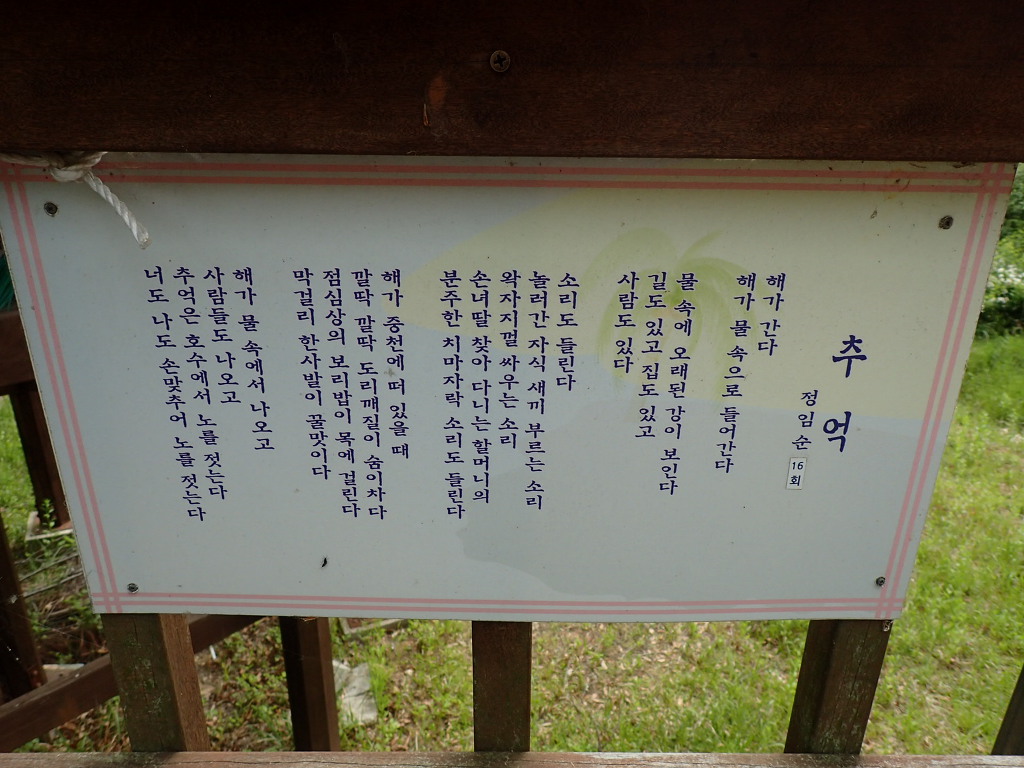 추억
정임순
16회
해가 간다
해가 물 속으로 들어간다
물 속에 오래된 강이 보인다
길도 있고 집도 있고
사람도 있다
소리도 들린다
놀러간 자식 새끼 부르는 소리
왁자지껄 싸우는 소리
손녀딸 찾아 다니는 할머니의
분주한 치마자락 소리도 들린다
해가 중천에 떠 있을 때
깔딱 깔딱 도리깨질이 숨이차다
점심상의 보리밥이 목에 걸린다
막걸리 한사발이 꿀맛이다
해가 물 속에서 나오고
사람들도 나오고
추억은 호수에서 노를 젓는다
너도 나도 손맞추어 노를 젓는다